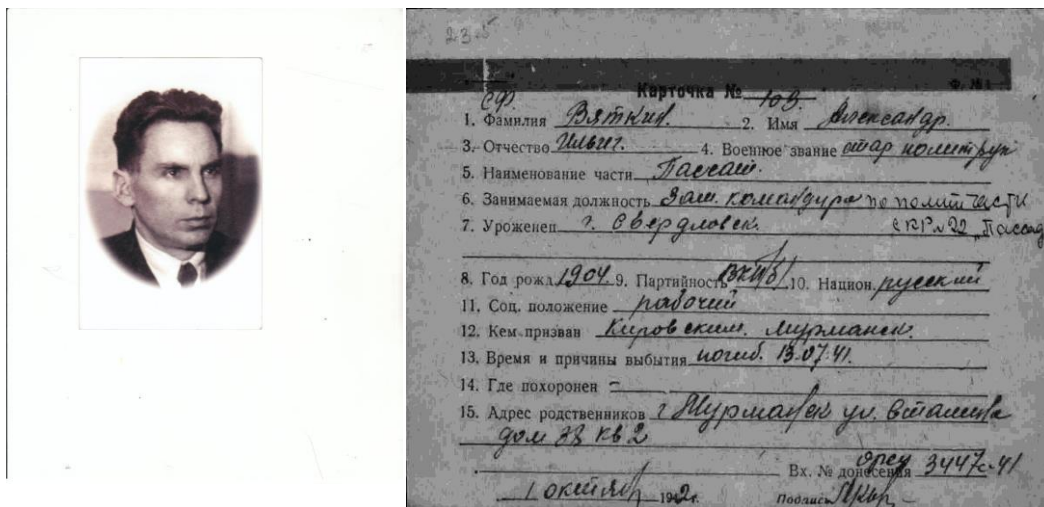 235
Ф. №1
СФ. Карточка № 103.
1. Фамилия Вяткин. 2. Имя Александр.
3. Отчество Ильич. 4. Военное звание стар политрук
5. Наименование части Пассат.
6. Занимаемая должность Зам. командира по полит части
7. Уроженец г. Свердловск. СКР №22 „Пассад
8. Год рожд 1904 9. Партийность ВКП/б/ 10. Национ. русский
11. Соц. положение рабочий
12. Кем призван Кировским. Мурманск.
13. Время и причины выбытия погиб. 13.07.41.
14. Где похоронен
15. Адрес родственников г Мурманск ул.
дом 38 кв 2
Вх. № донесения 3447с-41
1 октября 1942г. Подпись